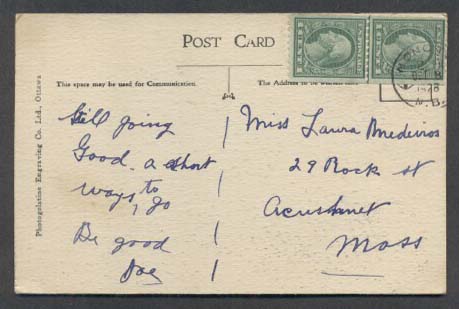 POST CARD
This space may be used for Communication.
The Address to be
Photogelatine Engraving Co. Ltd., Ottawa
Still going
Good. a short
ways to go
Be good
Miss Laura Medeiros
29 Rock st
Acushnet
Mass
N.B.